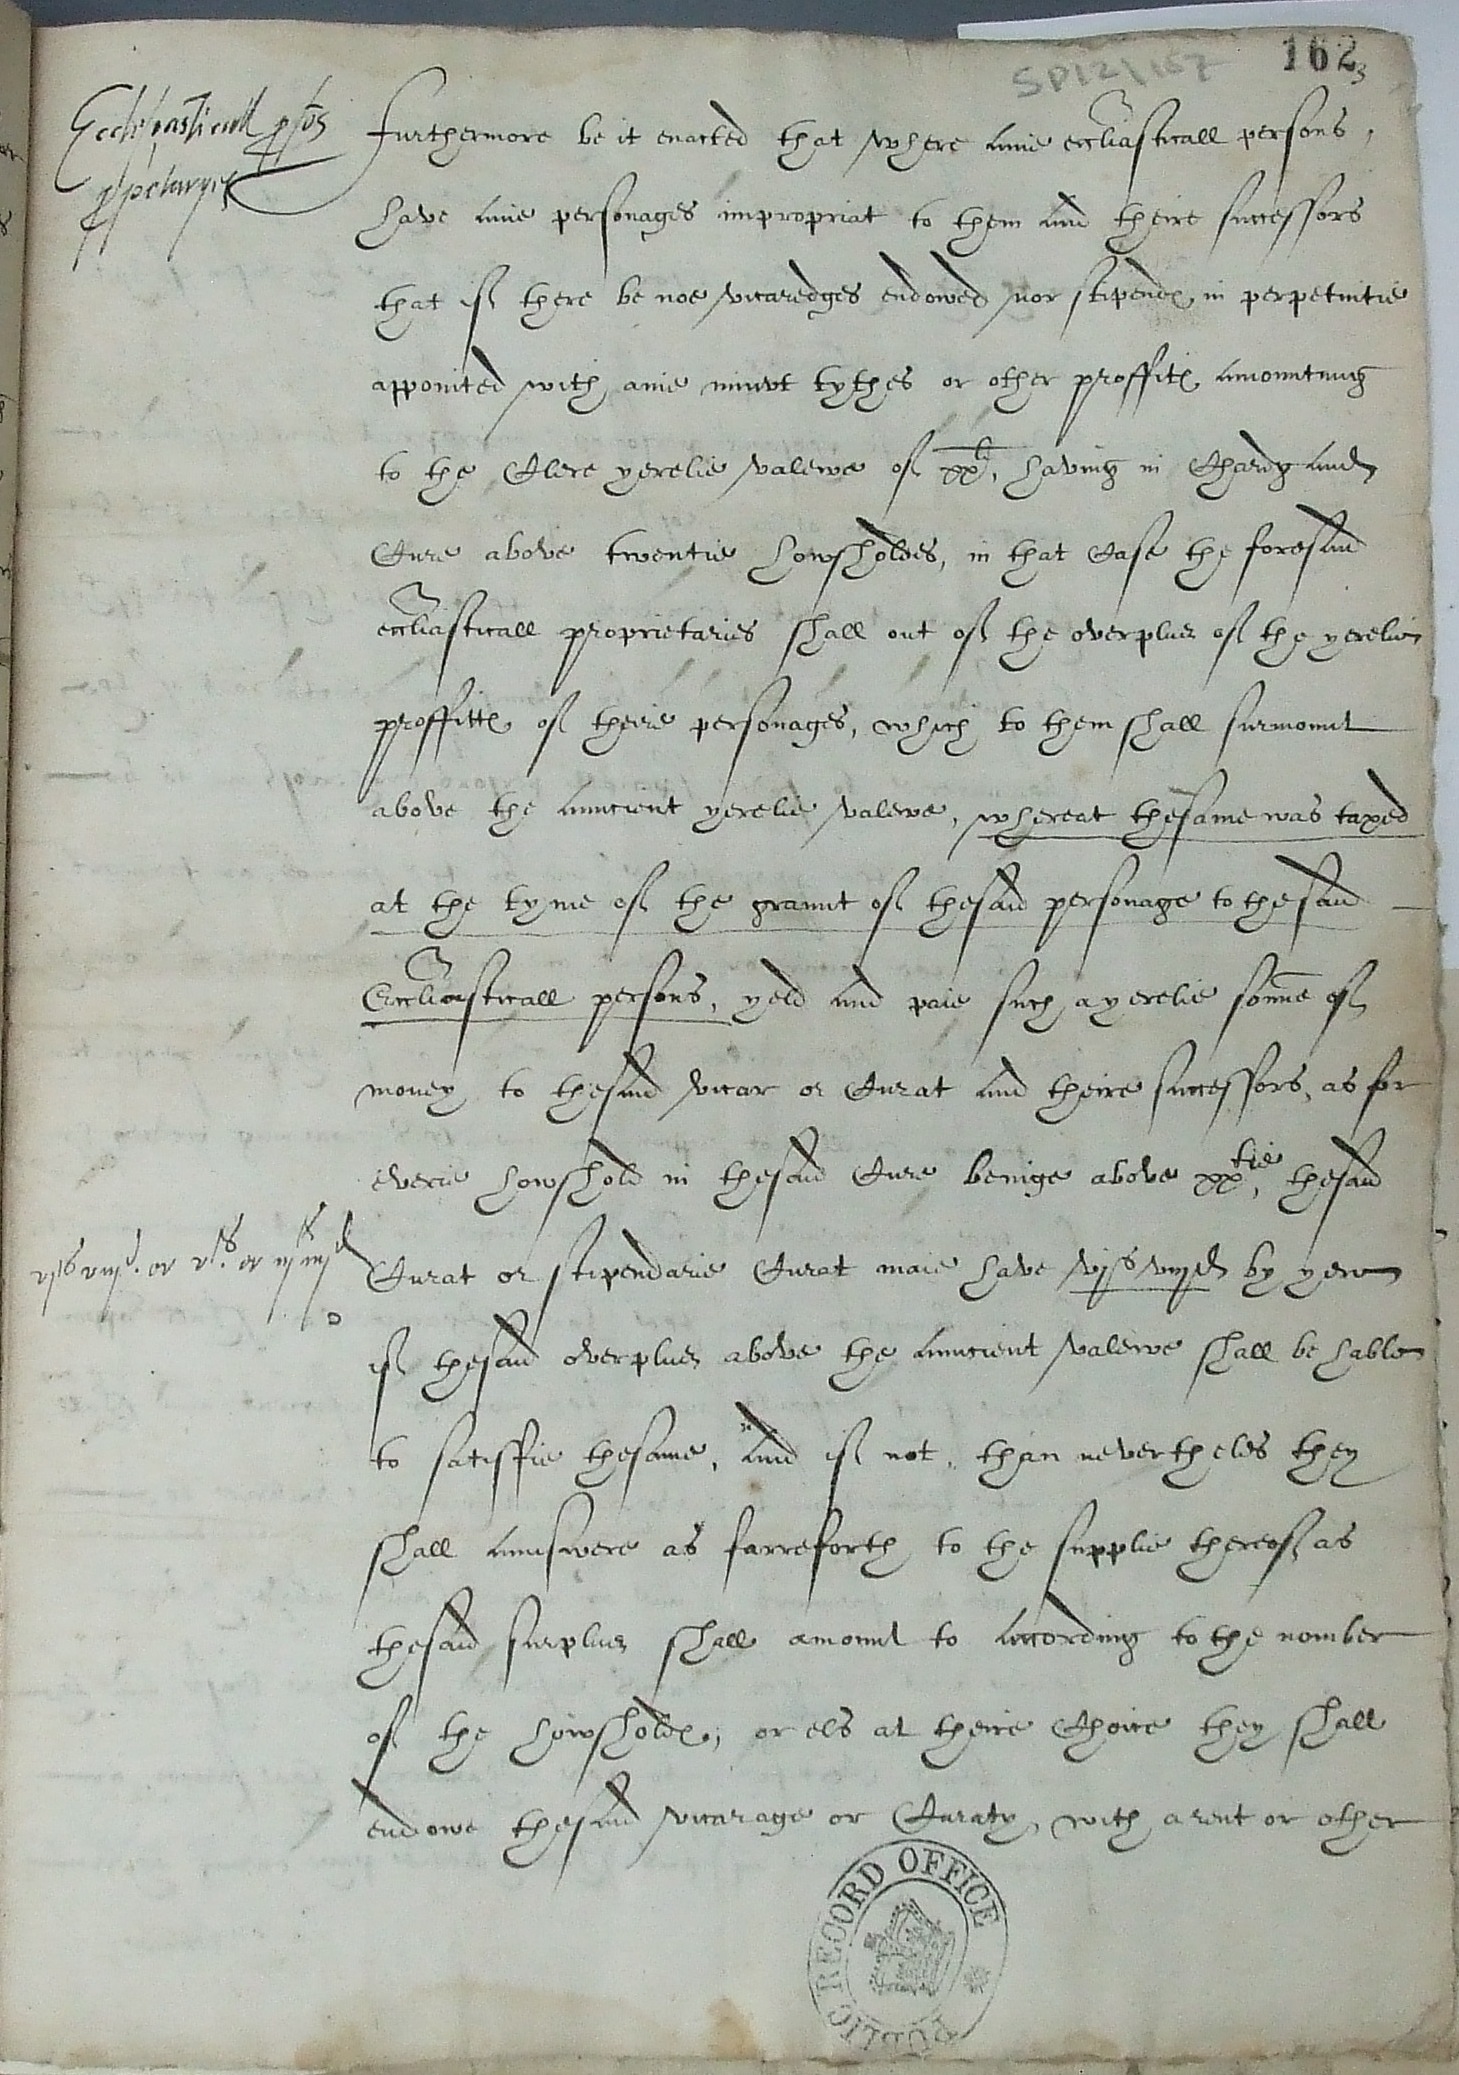 SP12\167
162
3
Ecclesiasticall
Furthermore be it enacted that where anie eccliasticall persons,
have anie personages impropriat to them and theire successors
that if there be noe vicaredges endowed nor stipendes in perpetuitie
appointed with anie minut tythes or other proffites amounting
to the Clere yerelie valewe of xx li, having in Chardg and
Cure above twentie howsholdes, in that Case the foresaid
eccliasticall proprietaries shall out of the overplus of the yerelie
proffittes of theire personages, which to them shall surmount
above the auncient yerelie valewe, whereat thesame was taxed
at the tyme of the graunt of thesaid personage to thesaid
Eccliasticall persons, yeld and paie such a yerelie somme of
money to thesaid vicar or Curat and theire successors, as for
everie howshold in thesaid Cure beinge above xx tie, thesaid
vjs viijd. or vs. or iijs iiijd
Curat or stipendarie Curat maie have vjs viijd by yere
if thesaid overplus above the auncient valewe shall be hable
to satisffie thesame, And if not, than nevertheles they
shall aunswere as farreforth to the supplie thereof as
thesaid surplus shall amount to according to the nomber
of the howsholdes, or els at theire Choice they shall
endowe thesaid vicarage or Curaty, with a rent or other
PUBLIC RECORD OFFICE